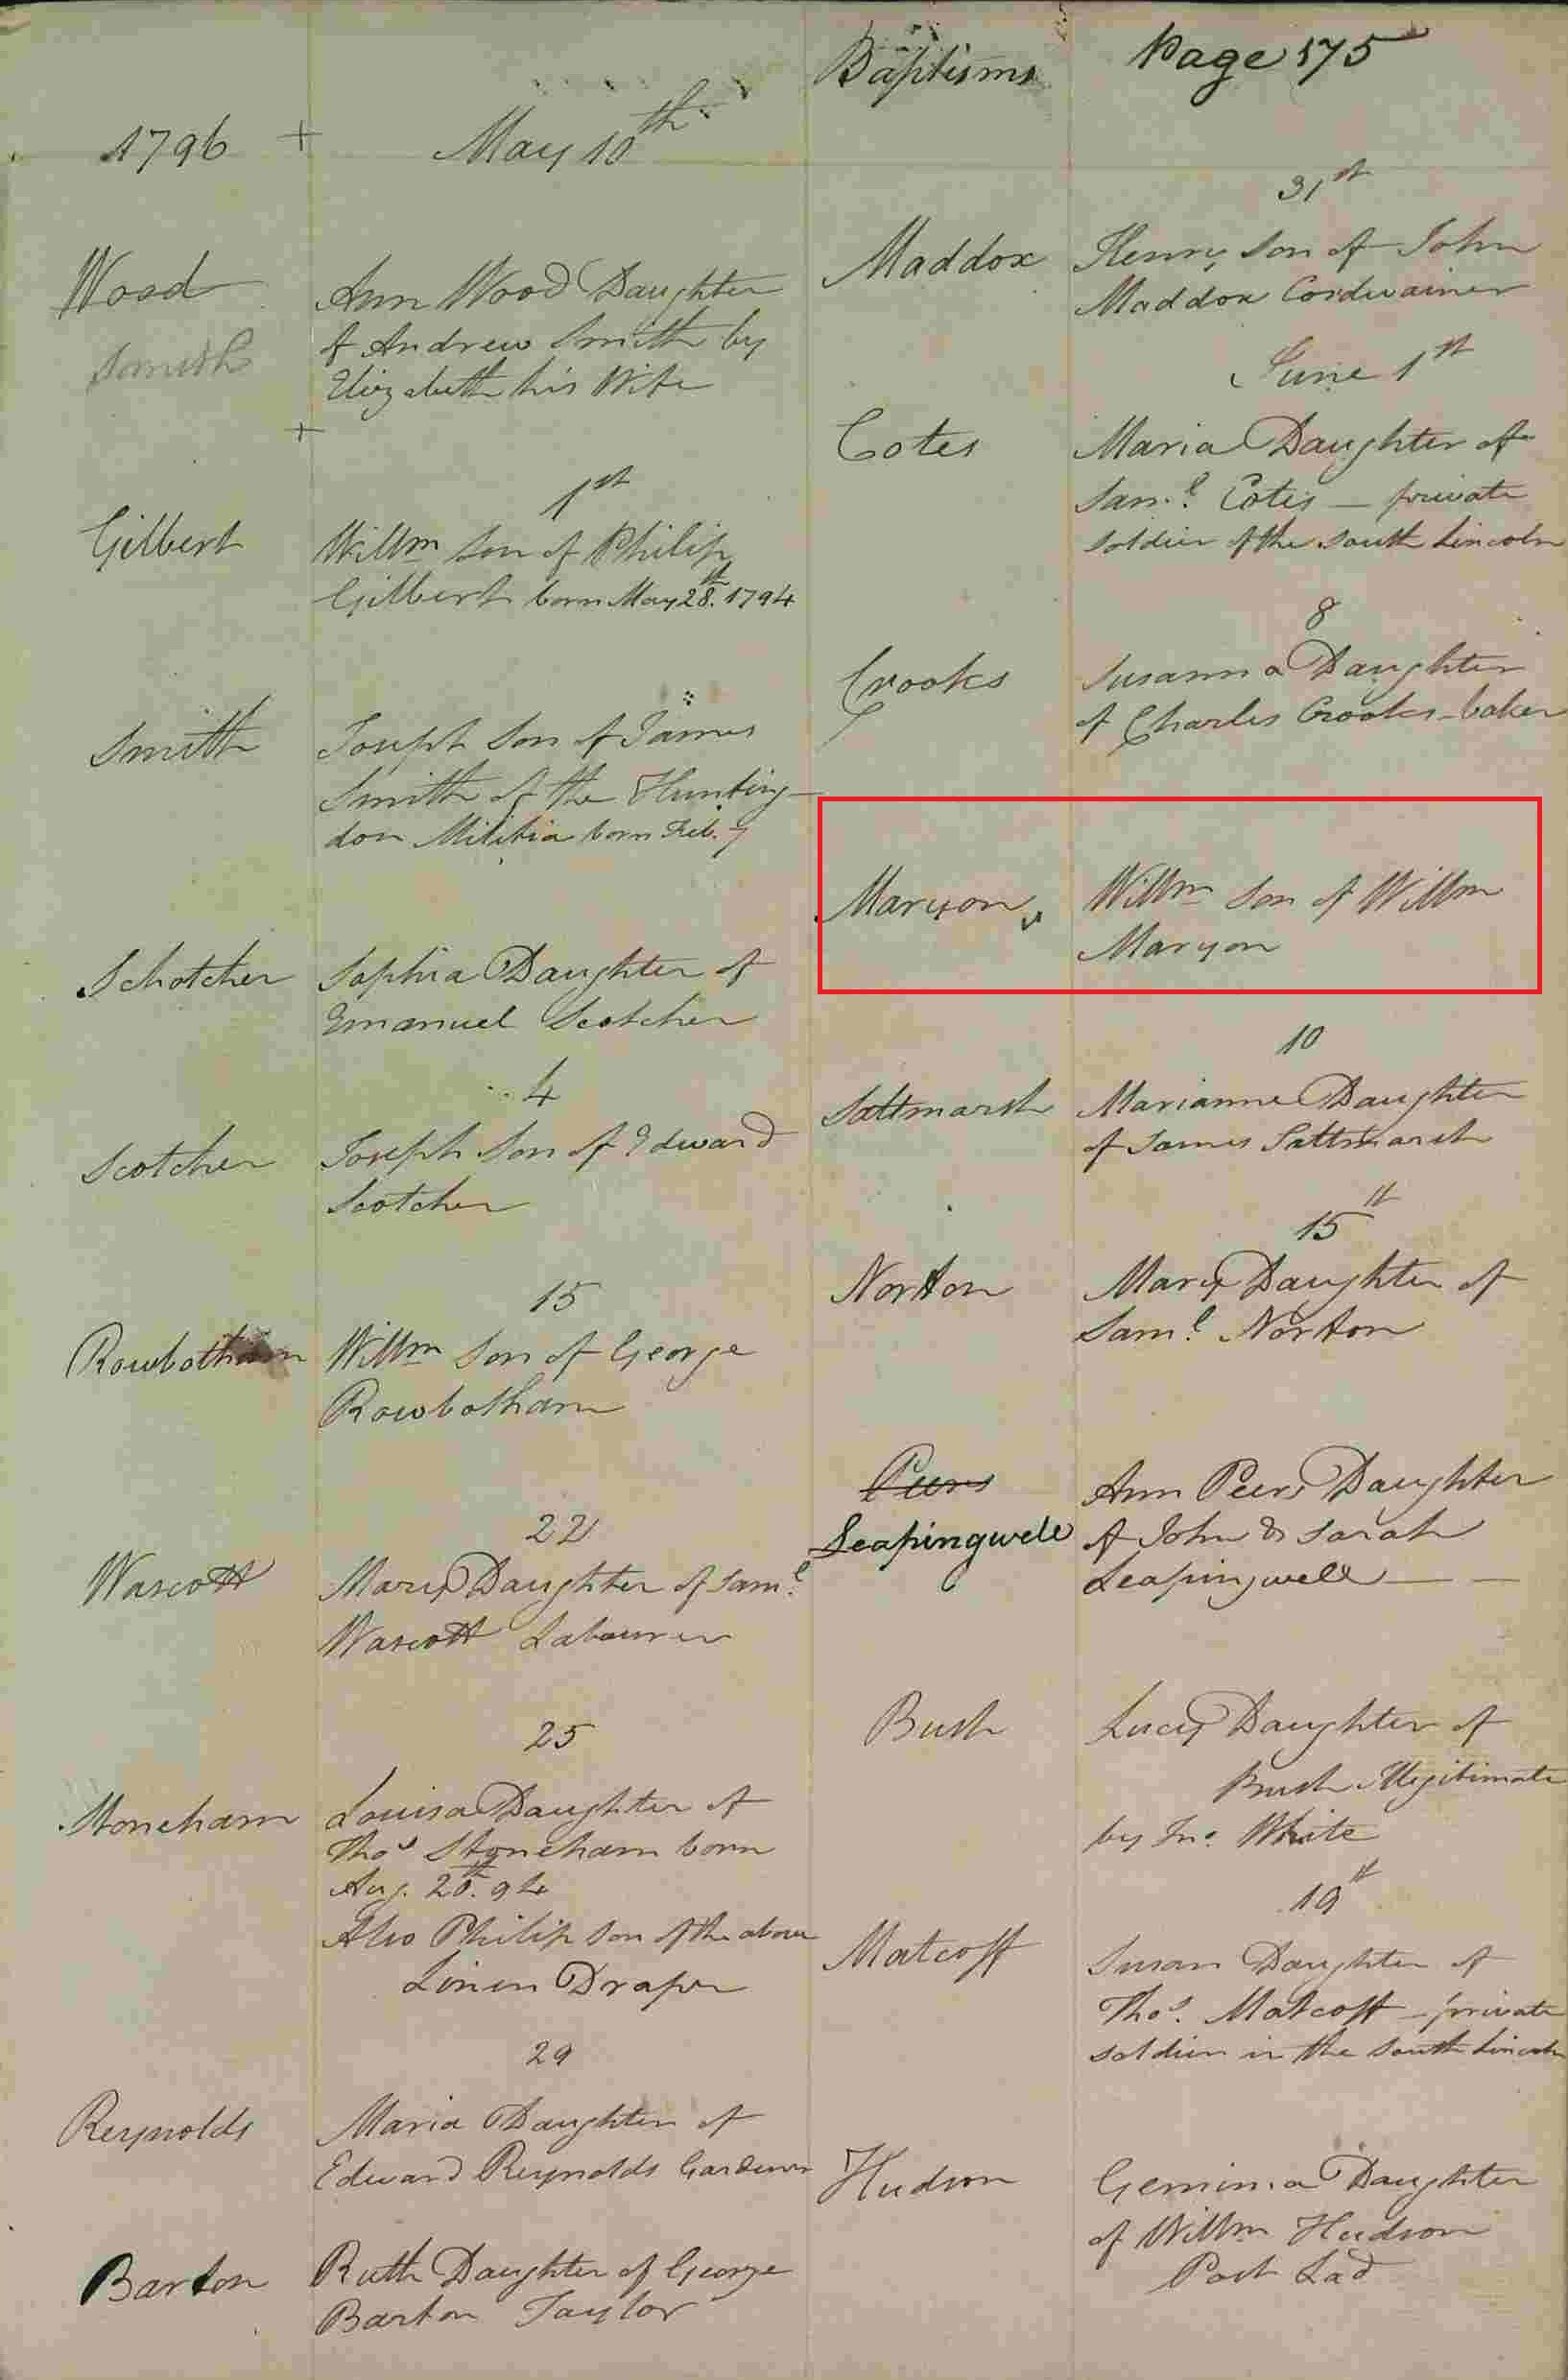 Baptisms Page 175
1796 + May 10th
Wood
Smith
Ann Wood Daughter
of Andrew Smith by
Elizabeth his Wife
+
1st
Gilbert
Willm son of Philip
Gilbert born May 28th. 1794
Smith
Joseph Son of James
Smith of the Hunting-
don Militia born Feb. 7
Schotcher
Sophia Daughter of
Emanuel Scotcher
4
Scotcher
Joseph Son of Edward
Scotcher
15
Rowbotham
Willm Son of George
Rowbotham
22
Wascott
Mary Daughter of Saml.
Wascott Labourer
25
Stoneham
Louisa Daughter of
Thos Stoneham born
Aug. 20th. 94
Also Philip son of the above
Linen Draper
29
Reynolds
Maria Daughter of
Edward Reynolds Gardener
Barton
Ruth Daughter of George
Barton Taylor
31st
Maddox
Henry Son of John
Maddox Cordwainer
June 1st
Cotes
Maria Daughter of
Saml. Cotes — private
soldier of the South Lincoln
8
Crooks
Susanna Daughter
of Charles Crooks - baker
Maryon
Willm Son of Willm
Maryon
10
Saltmarsh
Marianne Daughter
of James Saltmarsh
15th
Norton
Mary Daughter of
Saml. Norton
Peers
Leapingwell
Ann Peers Daughter
of John & Sarah
Leapingwell — —
Bush
Lucy Daughter of
Bush Illegitimate
by Jno. White
19th
Matcoff
Susan Daughter of
Thos. Matcoff - private
soldier in the South Lincoln
Hudson
Gemima Daughter
of Willm Hudson
Post Lad